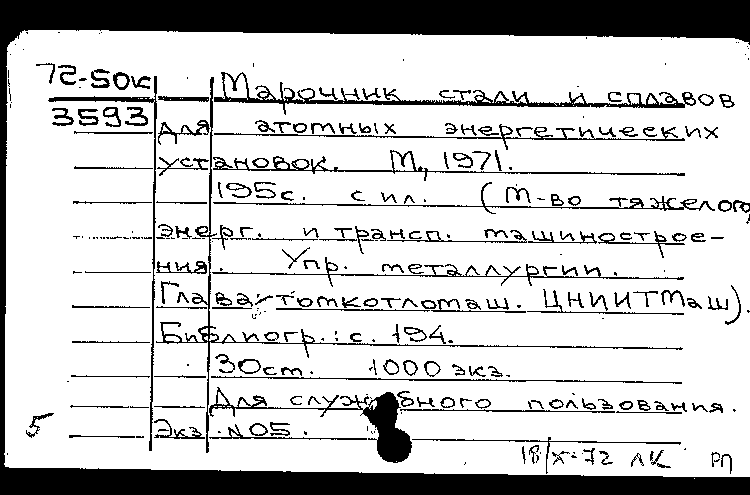 72-50к Марочник стали и сплавов
3593 для атомных энергетических
установок. М., 1971.
195с. с ил. (М-во тяжелого,
энерг. и трансп. машинострое-
ния. Упр. металлургии.
Главатомкотломаш. ЦНИИТМаш).
Библиогр.: с. 194.
30ст. 1000 экз.
Для служебного пользования.
5 Экз. №05.
18/X-72 ЛК РП